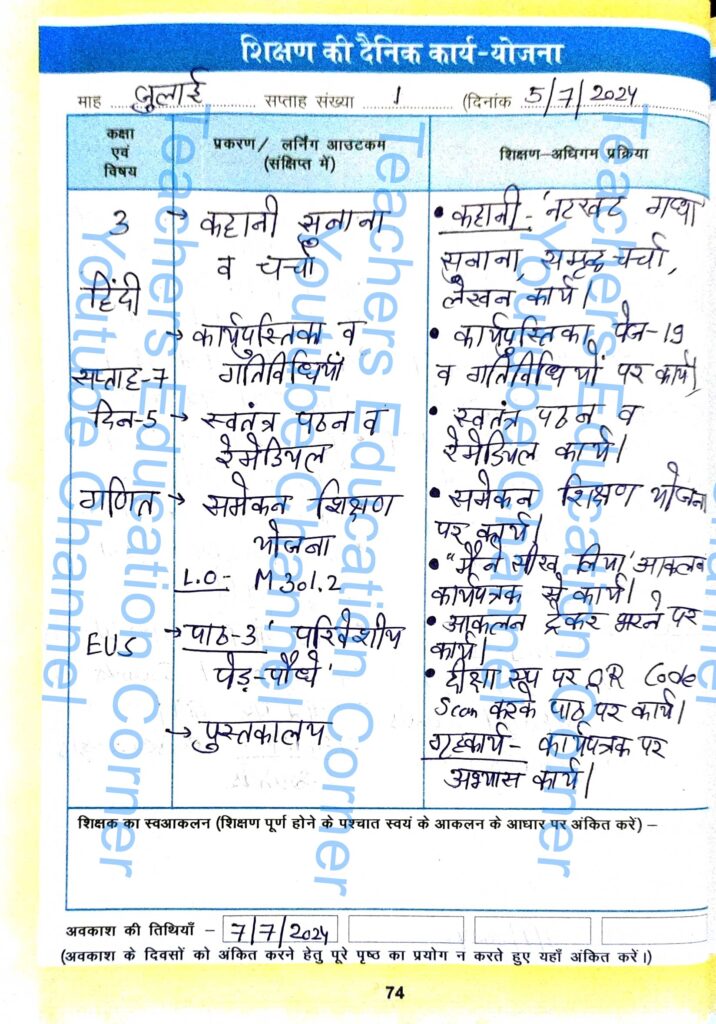 शिक्षण की दैनिक कार्य-योजना
माह जुलाई सप्ताह संख्या 1 (दिनांक 5/7/2024
कक्षा एवं विषय
प्रकरण/ लर्निंग आउटकम (संक्षिप्त में)
शिक्षण-अधिगम प्रक्रिया
3
हिंदी
सप्ताह-7
दिन-5
गणित
EVS
→ कहानी सुनाना
व चर्चा
→ कार्यपुस्तिका व
गतिविधियाँ
→ स्वतंत्र पठन व
रेमेडियल
→ समेकन शिक्षण
योजना
L.O- M301.2
→ पाठ-3 'परिवेशीय
पेड़-पौधे'
→ पुस्तकालय
• कहानी- 'नटखट गधा'
सुनाना, समूह चर्चा,
लेखन कार्य।
• कार्यपुस्तिका पेज-19
व गतिविधियों पर कार्य।
• स्वतंत्र पठन व
रेमेडियल कार्य।
• समेकन शिक्षण योजना
पर कार्य।
• "मैंने सीख लिया' आकलन
कार्यपत्रक से कार्य।
• आकलन ट्रेकर भरने पर
कार्य।
• दीक्षा एप पर QR Code
Scan करके पाठ पर कार्य।
गृहकार्य- कार्यपत्रक पर
अभ्यास कार्य।
शिक्षक का स्वआकलन (शिक्षण पूर्ण होने के पश्चात स्वयं के आकलन के आधार पर अंकित करें) –
अवकाश की तिथियाँ – 7/7/2024
(अवकाश के दिवसों को अंकित करने हेतु पूरे पृष्ठ का प्रयोग न करते हुए यहाँ अंकित करें।)
74
Teachers Education Corner
Youtube Channel
Teachers Education Corner
Youtube Channel
Teachers Education Corner
Youtube Channel